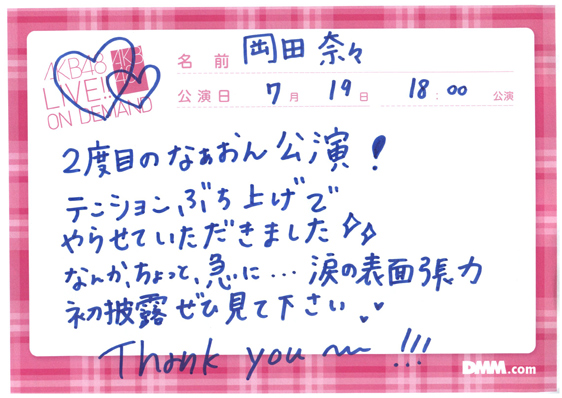 AKB48
LIVE!!
ON DEMAND
AKB
名前 岡田奈々
公演日 7月 19日 18:00 公演
2度目のなぁおん公演!
テンション、ぶち上げで
やらせていただきました
なんか、ちょっと、急に…涙の表面張力
初披露ぜひ見て下さい
Thank you 〜 !!!
DMM.com